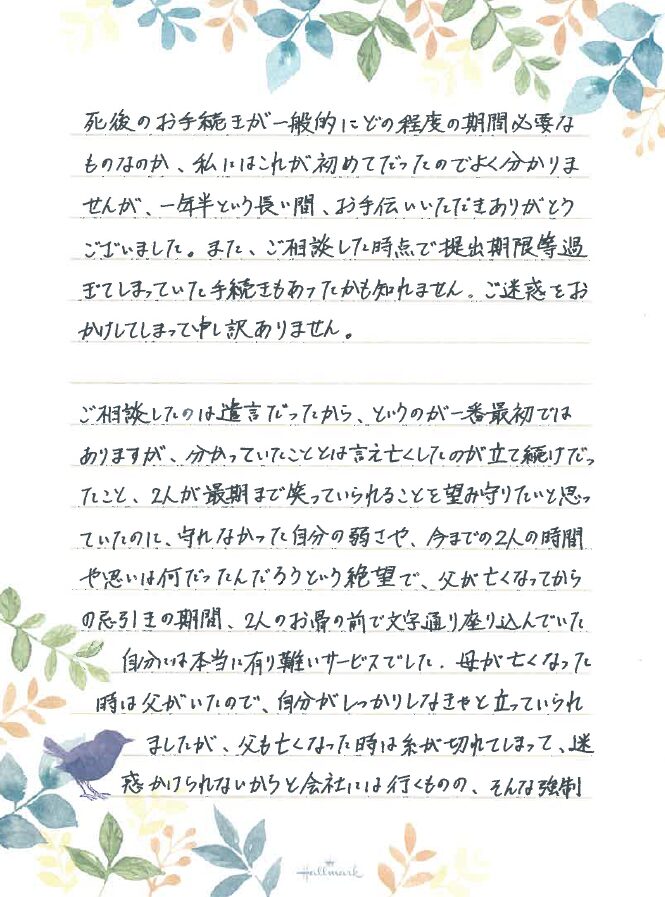 死後のお手続きが一般的にどの程度の期間必要な
ものなのか、私にはこれが初めてだったのでよく分かりま
せんが、一年半という長い間、お手伝いいただきありがとう
ございました。また、ご相談した時点で提出期限等過
ぎてしまっていた手続きもあったかも知れません。ご迷惑をお
かけしてしまって申し訳ありません。
ご相談したのは遺言だったから、というのが一番最初では
ありますが、分かっていたこととは言え亡くしたのが立て続けだっ
たこと、2人が最期まで笑っていられることを望み守りたいと思っ
ていたのに、守れなかった自分の弱さや、今までの2人の時間
や思いは何だったんだろうという絶望で、父が亡くなってから
の忌引きの期間、2人のお骨の前で文字通り座り込んでいた
自分には本当に有り難いサービスでした。母が亡くなった
時は父がいたので、自分がしっかりしなきゃと立っていられ
ましたが、父も亡くなった時は糸が切れてしまって、迷
惑かけられないからと会社には行くものの、そんな強制
Hallmark